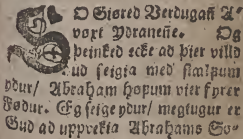 SO Giøred Verdugañ A-
voxt Ydraneñe. Og
þeinked ecke ad þier villd
ud seigia med sialfum
ydur / Abraham høfum vier fyrer
Fødur. Eg seige ydur / megtugur er
Gud ad uppvekia Abrahams Sø-